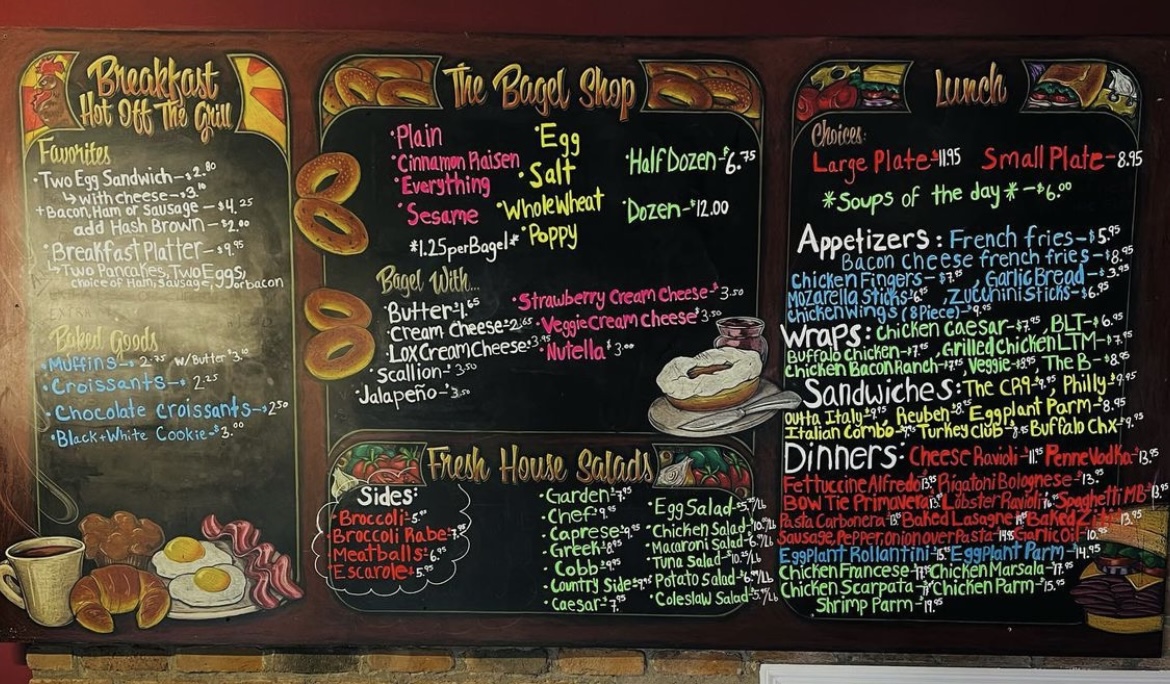 Breakfast
Hot Off The Grill
Favorites
•Two Egg Sandwich-$2.80
↳ with cheese-$3.10
+Bacon, Ham or Sausage-$4.25
add Hash Brown-$2.00
•Breakfast Platter-$9.95
↳Two Pancakes, Two Eggs,
choice of Ham, Sausage, or bacon
Baked Goods
•Muffins-$2.75 w/Butter $3.10
•Croissants-$2.25
•Chocolate croissants-$2.50
•Black+White Cookie-$3.00
The Bagel Shop
•Plain
•Cinnamon Raisen
•Everything
•Sesame
•Egg
•Salt
•Whole Wheat
•Poppy
•Half Dozen-$6.75
•Dozen-$12.00
*$1.25 per Bagel*
Bagel With...
•Butter-$1.65
•Cream cheese-2.65
•Lox Cream Cheese-$3.95
•Scallion-$3.50
•Jalapeño-$3.50
•Strawberry Cream Cheese-$3.50
•Veggie Cream Cheese$3.50
•Nutella$3.00
Fresh House Salads
Sides:
•Broccoli-5.95
•Broccoli Rabe-7.95
•Meatballs-$6.95
•Escarole-$5.95
•Garden-$7.95
•Chef-$9.95
•Caprese-$9.95
•Greek-$8.95
•Cobb-$9.95
•Country Side-$9.95
•Caesar-$7.95
•Egg Salad-$5.75/Lb
•Chicken Salad-10.75/Lb
•Macaroni Salad
•Tuna Salad-$10.25/Lb
•Potato Salad
•Coleslaw Salad
Lunch
Choices:
Large Plate-$11.95 Small Plate-8.95
*Soups of the day*-$6.00
Appetizers: French fries-$5.95
Bacon cheese french fries-$8.95
Chicken Fingers-$7.95, Garlic Bread-$3.95
Mozarella Sticks-$6.95, Zucchini Sticks-$6.95
chicken wings (8 Piece)-$9.95
Wraps: Chicken Caesar-$7.95, BLT-$6.95
Buffalo Chicken-$7.95, Grilled Chicken LTM-$7.95
Chicken Bacon Ranch-$7.95, Veggie-$8.95, The B-$8.95
Sandwiches: The CRA-$9.95, Philly-$9.95
Outta Italy-$9.95, Reuben-$8.95 Eggplant Parm-$8.95
Italian Combo Turkey Club Buffalo Chx-$9.95
Dinners: Cheese Ravioli-$11.95 Penne Vodka-$13.95
Fettuccine Alfredo 13.95 Rigatoni Bolognese-13.95
Bow Tie Primavera Lobster Ravioli Spaghetti MB-$13.95
Pasta Carbonera Baked Lasagne Baked Ziti 13.95
Sausage, Pepper, Onion over Pasta-14.95 Garlic Oil-10.95
Eggplant Rollantini-$15.95 Eggplant Parm-$14.95
Chicken Francese-17.95 Chicken Marsala-17.95
Chicken Scarpata Chicken Parm-15.95
Shrimp Parm-$19.95